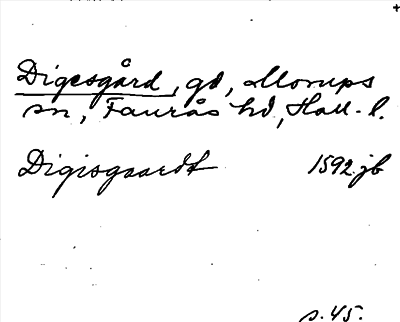 Digesgård, gd, Morups
sn, Faurås hd, Hall. l.
Digisgaardt 1592 jb
s. 45.